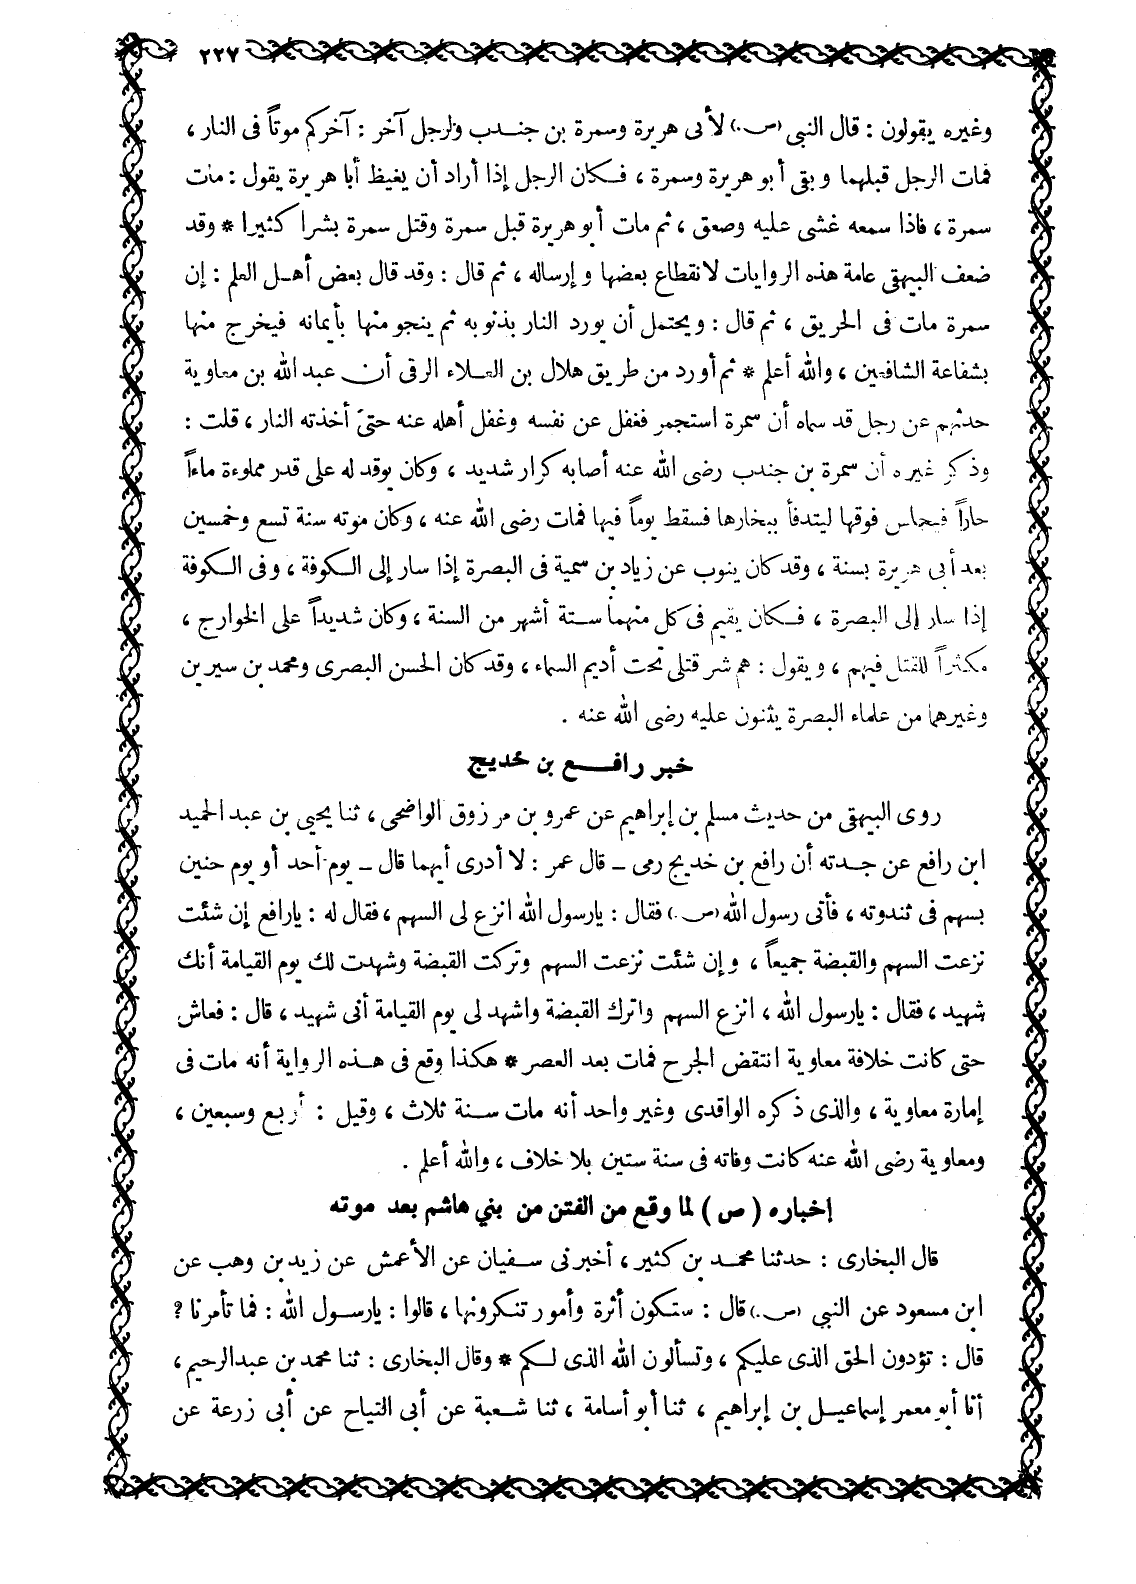 ٢٢٧
وغيره يقولون : قال النبى (ص) لأبى هريرة وسمرة بن جندب ولرجل آخر : آخركم موتاً فى النار ،
فمات الرجل قبلهما وبقى أبو هريرة وسمرة ، فكان الرجل إذا أراد أن يغيظ أبا هريرة يقول : مات
سمرة ، فاذا سمعه غشى عليه وصعق ، ثم مات أبو هريرة قبل سمرة وقتل سمرة بشرا كثيرا * وقد
ضعف البيهقى عامة هذه الروايات لانقطاع بعضها وإرساله ، ثم قال : وقد قال بعض أهل العلم : إن
سمرة مات فى الحريق ، ثم قال : ويحتمل أن يورد النار بذنوبه ثم ينجو منها بأيمانه فيخرج منها
بشفاعة الشافعين ، والله أعلم * ثم أورد من طريق هلال بن العلاء الرقى أن عبد الله بن معاوية
حدثهم عن رجل قد سماه أن سمرة استجمر فغفل عن نفسه وغفل أهله عنه حتى أخذته النار ، قلت :
وذكر غيره أن سمرة بن جندب رضى الله عنه أصابه كرار شديد ، وكان يوقد له على قدر مملوءة ماءاً
حاراً فيجلس فوقها ليتدفأ ببخارها فسقط يوماً فيها فمات رضى الله عنه ، وكان موته سنة تسع وخمسين
بعد أبى هريرة بسنة ، وقد كان ينوب عن زياد بن سمية فى البصرة إذا سار إلى الكوفة ، وفى الكوفة
إذا سار إلى البصرة ، فكان يقيم فى كل منهما ستة أشهر من السنة ، وكان شديداً على الخوارج ،
مكثراً للقتل فيهم ، ويقول : هم شر قتلى تحت أديم السماء ، وقد كان الحسن البصرى ومحمد بن سيرين
وغيرهما من علماء البصرة يثنون عليه رضى الله عنه .
خبر رافع بن خديج
روى البيهقى من حديث مسلم بن إبراهيم عن عمرو بن مرزوق الواضحى ، ثنا يحيى بن عبد الحميد
ابن رافع عن جدته أن رافع بن خديج رمى ــ قال عمر : لا أدرى أيهما قال ــ يوم أحد أو يوم حنين
بسهم فى ثندوته ، فأتى رسول الله (ص) فقال : يارسول الله انزع لى السهم ، فقال له : يارافع إن شئت
نزعت السهم والقبضة جميعاً ، وإن شئت نزعت السهم وتركت القبضة وشهدت لك يوم القيامة أنك
شهيد ، فقال : يارسول الله ، انزع السهم واترك القبضة واشهد لى يوم القيامة أنى شهيد ، قال : فعاش
حتى كانت خلافة معاوية انتقض الجرح فمات بعد العصر * هكذا وقع فى هذه الرواية أنه مات فى
إمارة معاوية ، والذى ذكره الواقدى وغير واحد أنه مات سنة ثلاث ، وقيل : أربع وسبعين ،
ومعاوية رضى الله عنه كانت وفاته فى سنة ستين بلا خلاف ، والله أعلم .
إخباره ( ص ) لما وقع من الفتن من بني هاشم بعد موته
قال البخارى : حدثنا محمد بن كثير ، أخبرنى سفيان عن الأعمش عن زيد بن وهب عن
ابن مسعود عن النبي (ص) قال : ستكون أثرة وأمور تنكرونها ، قالوا : يارسول الله : فما تأمرنا ؟
قال : تؤدون الحق الذى عليكم ، وتسألون الله الذى لكم * وقال البخارى : ثنا محمد بن عبدالرحيم ،
أنا أبو معمر إسماعيل بن إبراهيم ، ثنا أبو أسامة ، ثنا شعبة عن أبى التياح عن أبى زرعة عن